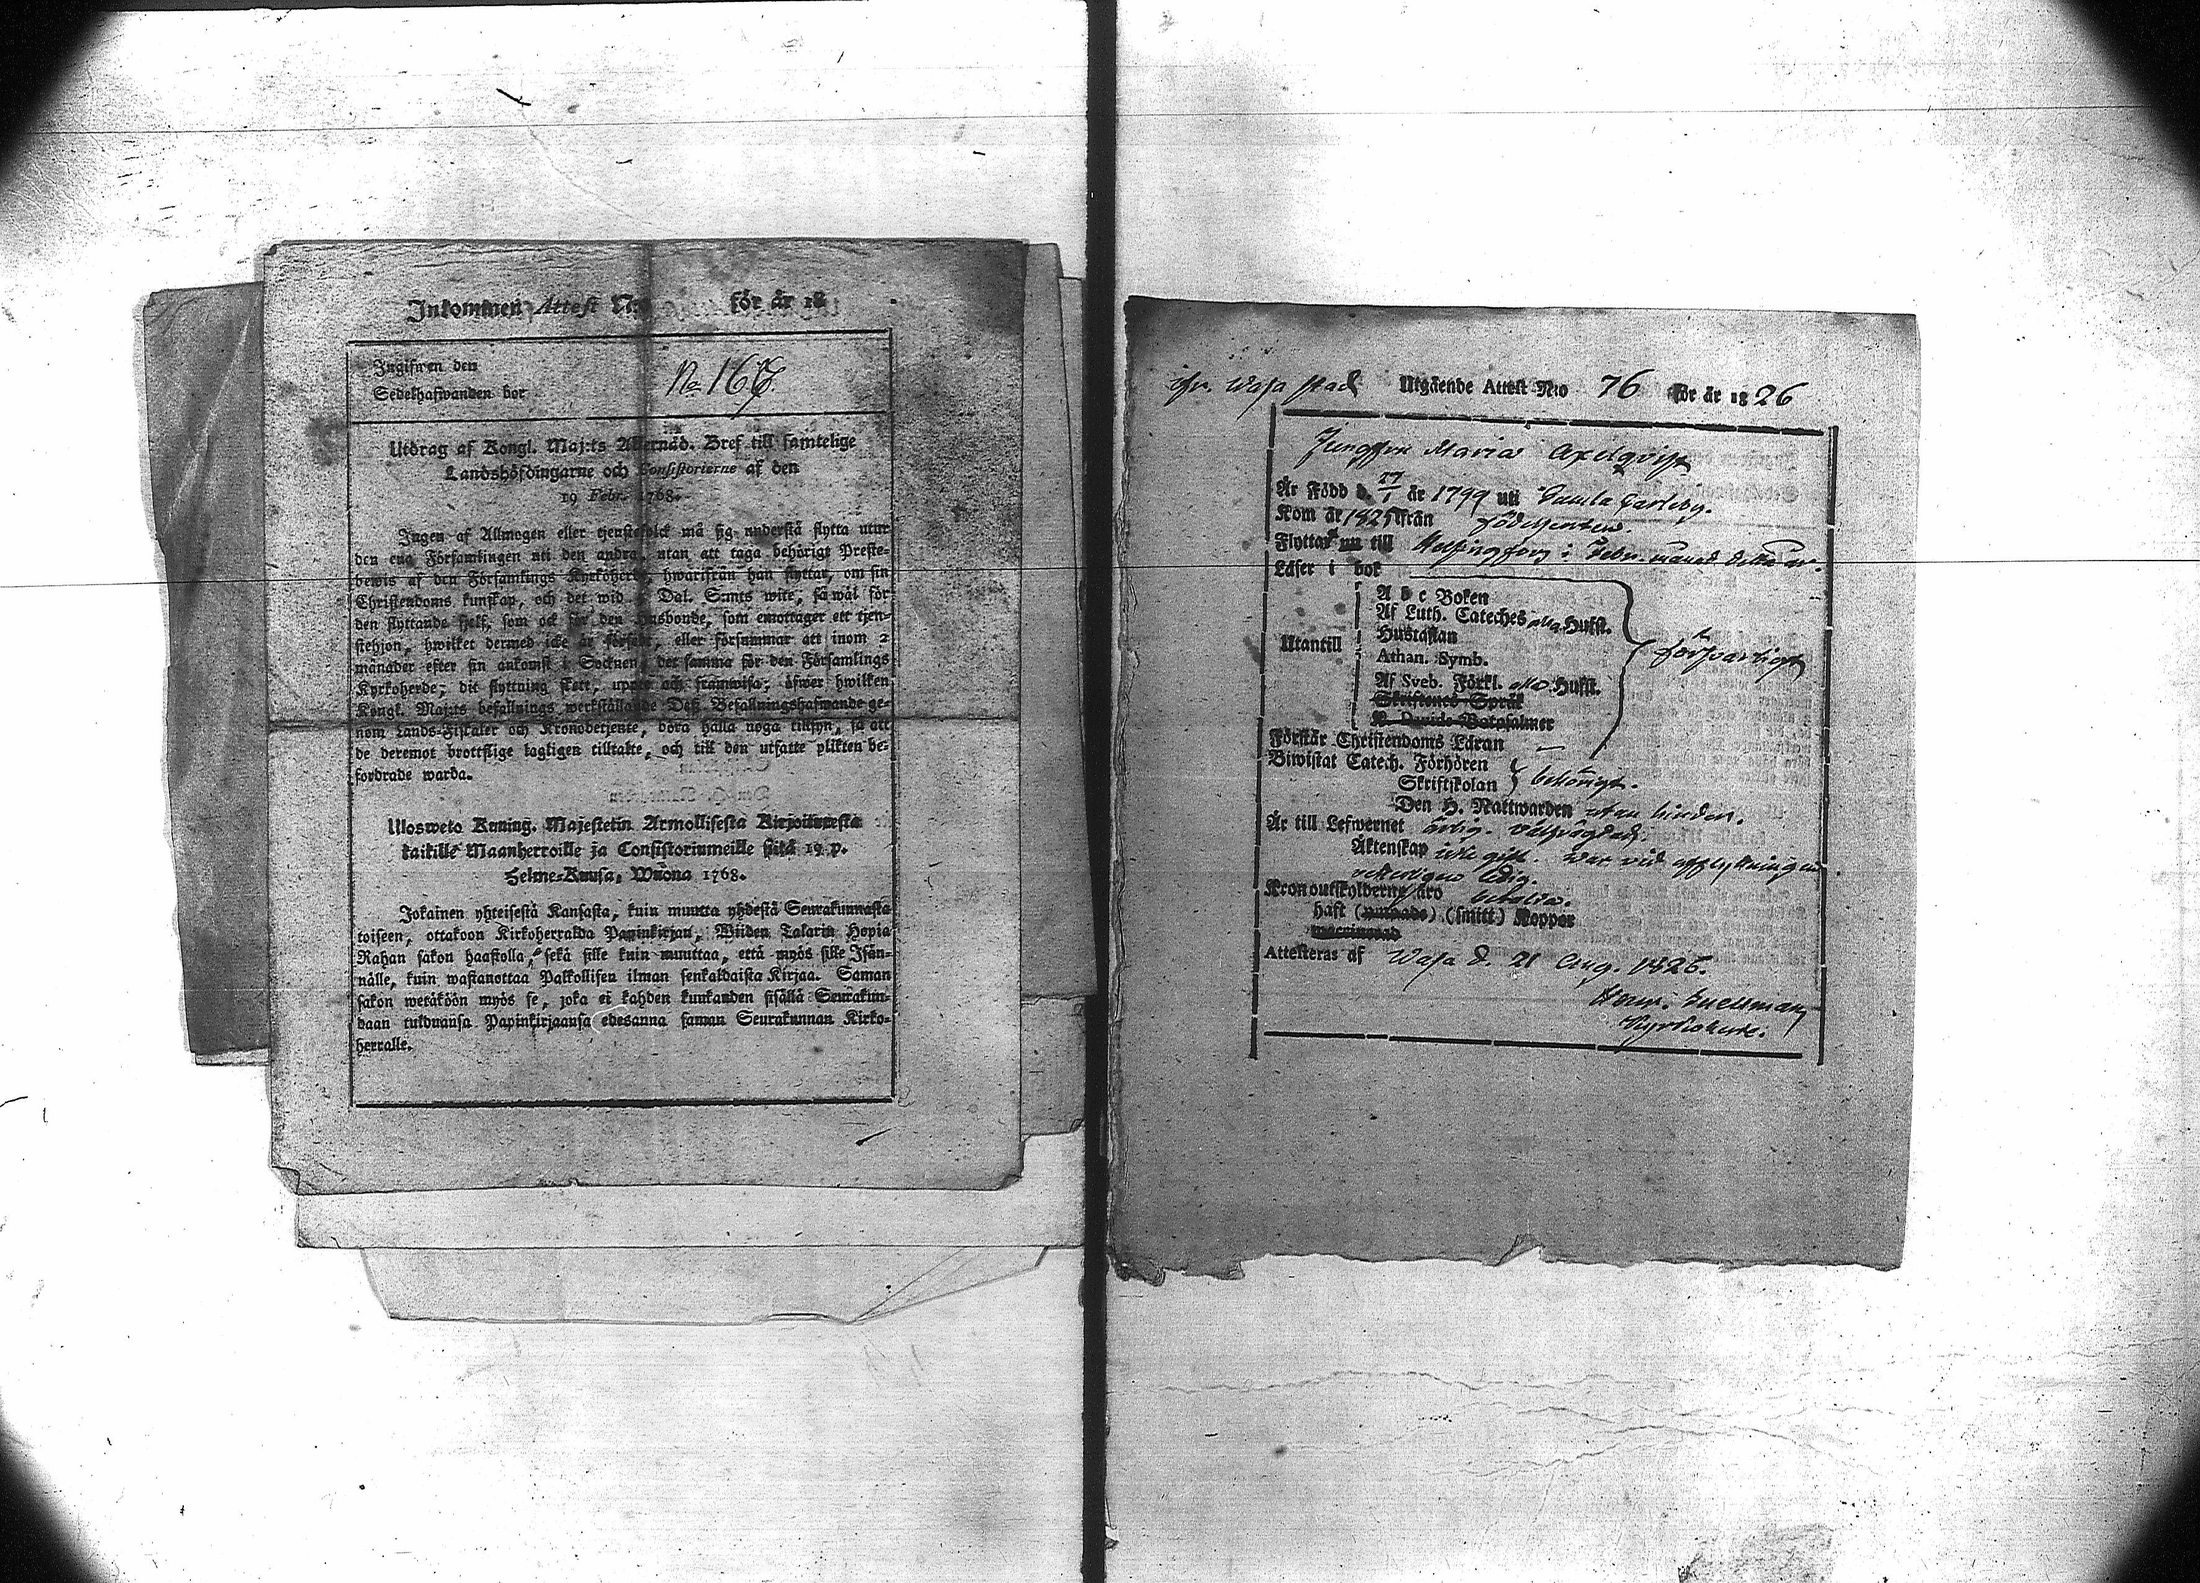 Inkommen Attest N:o för år 18
Ingifwen den
Sedelhafwanden bor
No 167.
Utdrag af Kongl. Maj:ts Allernåd. Bref till samtelige
Landshöfdingarne och Consistorierne af den
19 Febr. 1768.
Ingen af Allmogen eller tjenstefolck må sig understå flytta utur
den ena Församlingen uti den andra, utan att taga behörigt Preste-
bewis af den Församlings Kyrkoherde, hwarifrån han flyttar, om sin
Christendoms kunskap, och det wid Dal. S:mts wite, så wäl för
den flyttande sjelf, som ock för den Husbonde, som emottager ett tjen-
stehjon, hwilket dermed icke är försedt, eller försummar att inom 2
månader efter sin ankomst i Socknen, det samma för den Församlings
Kyrkoherde, dit flyttning skett, uppte och framwisa; öfwer hwilken
Kongl. Maj:ts befallnings werkställande Deß Befallningshafwande ge-
nom Lands-Fiskaler och Kronobetjente, böra hålla noga tillsyn, så att
de deremot brottslige lagligen tilltalte, och till den utsatte plikten be-
fordrade warda.
Ulosweto Kuning. Majestetin Armollisesta Kirjoituresta
kaikille Maanherroille ja Consistoriumeille siitä 19 p.
Helme-Kuusa, Wuona 1768.
Jokainen yhteisestä Kansasta, kuin muutta yhdestä Seurakunnasta
toiseen, ottakoon Kirkoherralda Papinkirjan, Wiiden Talarin Hopia
Rahan sakon haastolla, sekä sille kuin muuttaa, että myös sille Isän-
nälle, kuin wastanottaa Palkollisen ilman senkaldaista Kirjaa. Saman
sakon wetäköön myös se, joka ei kahden kuukauden sisällä Seurakun-
daan tulduansa Papinkirjaansa edesanna saman Seurakunnan Kirko-
herralle.
ifr. Wasa stad Utgående Attest N:o 76 för år 1826
Jungfru Maria Axelqvist
Är Född d. 27/1 år 1799 uti Gamla Carleby.
Kom år 1825 ifrån födelseorten
Flyttar nu till Helsingfors i Febr. månad detta år.
Läser i bok
A b c Boken
Af Luth. Cateches alla Hufst.
Hustaflan
Utantill
Athan. Symb.
försvarligt
Af Sveb. Förkl. alla Hufst.
Skriftenes Språk
K. Davids Botpsalmer
Förstår Christendoms Läran
Biwistat Catech. Förhören
Skriftskolan behörigt.
Den H. Nattwarden utan hinder.
Är till Lefwernet ärlig. välfrägdad.
Äktenskap icke gift. war vid afflyttningen
veterligen ledig.
Kronoutskylderne äro betalta.
haft (         ) (smitt) Koppor
vaccinerad
Attesteras af Wasa d. 21 Aug. 1826.
Kyrkoherde.